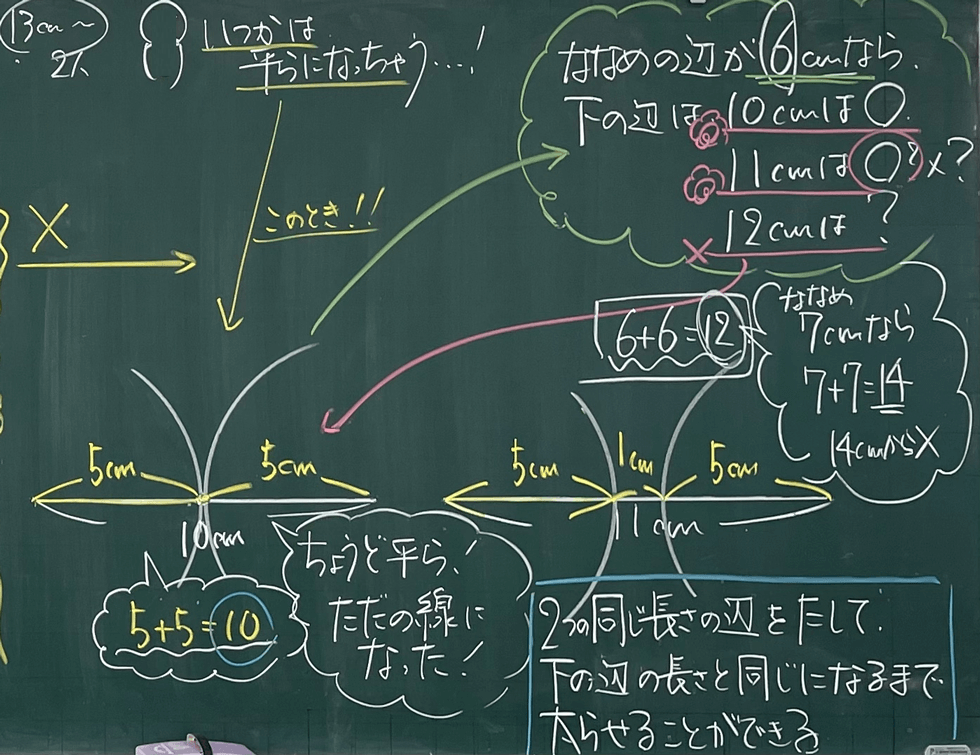 13cm〜
いつかは
平らになっちゃう…!
このとき!!
X
ななめの辺が6cmなら、
下の辺は、10cmは○
11cmは○? x?
× 12cmは?
6+6=12
ななめ
7cmなら
7+7=14
14cmからX
5cm
5cm
10cm
5+5=10
ちょうど平ら!
ただの線に
なった!
5cm
1cm
5cm
11cm
2つの同じ長さの辺をたして、
下の辺の長さと同じになるまで
せることができる